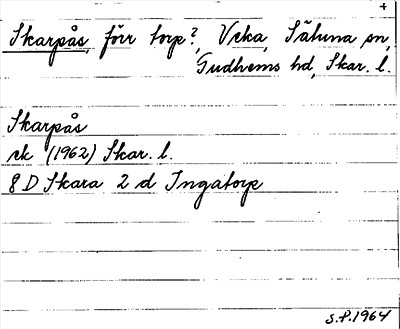 +
Skarpås, förr torp?, Vcka, Sätuna sn,
Gudhems hd, Skar. l.
Skarpås
ek (1962) Skar. l.
8 D Skara 2 d Ingatorp
S.F.1964